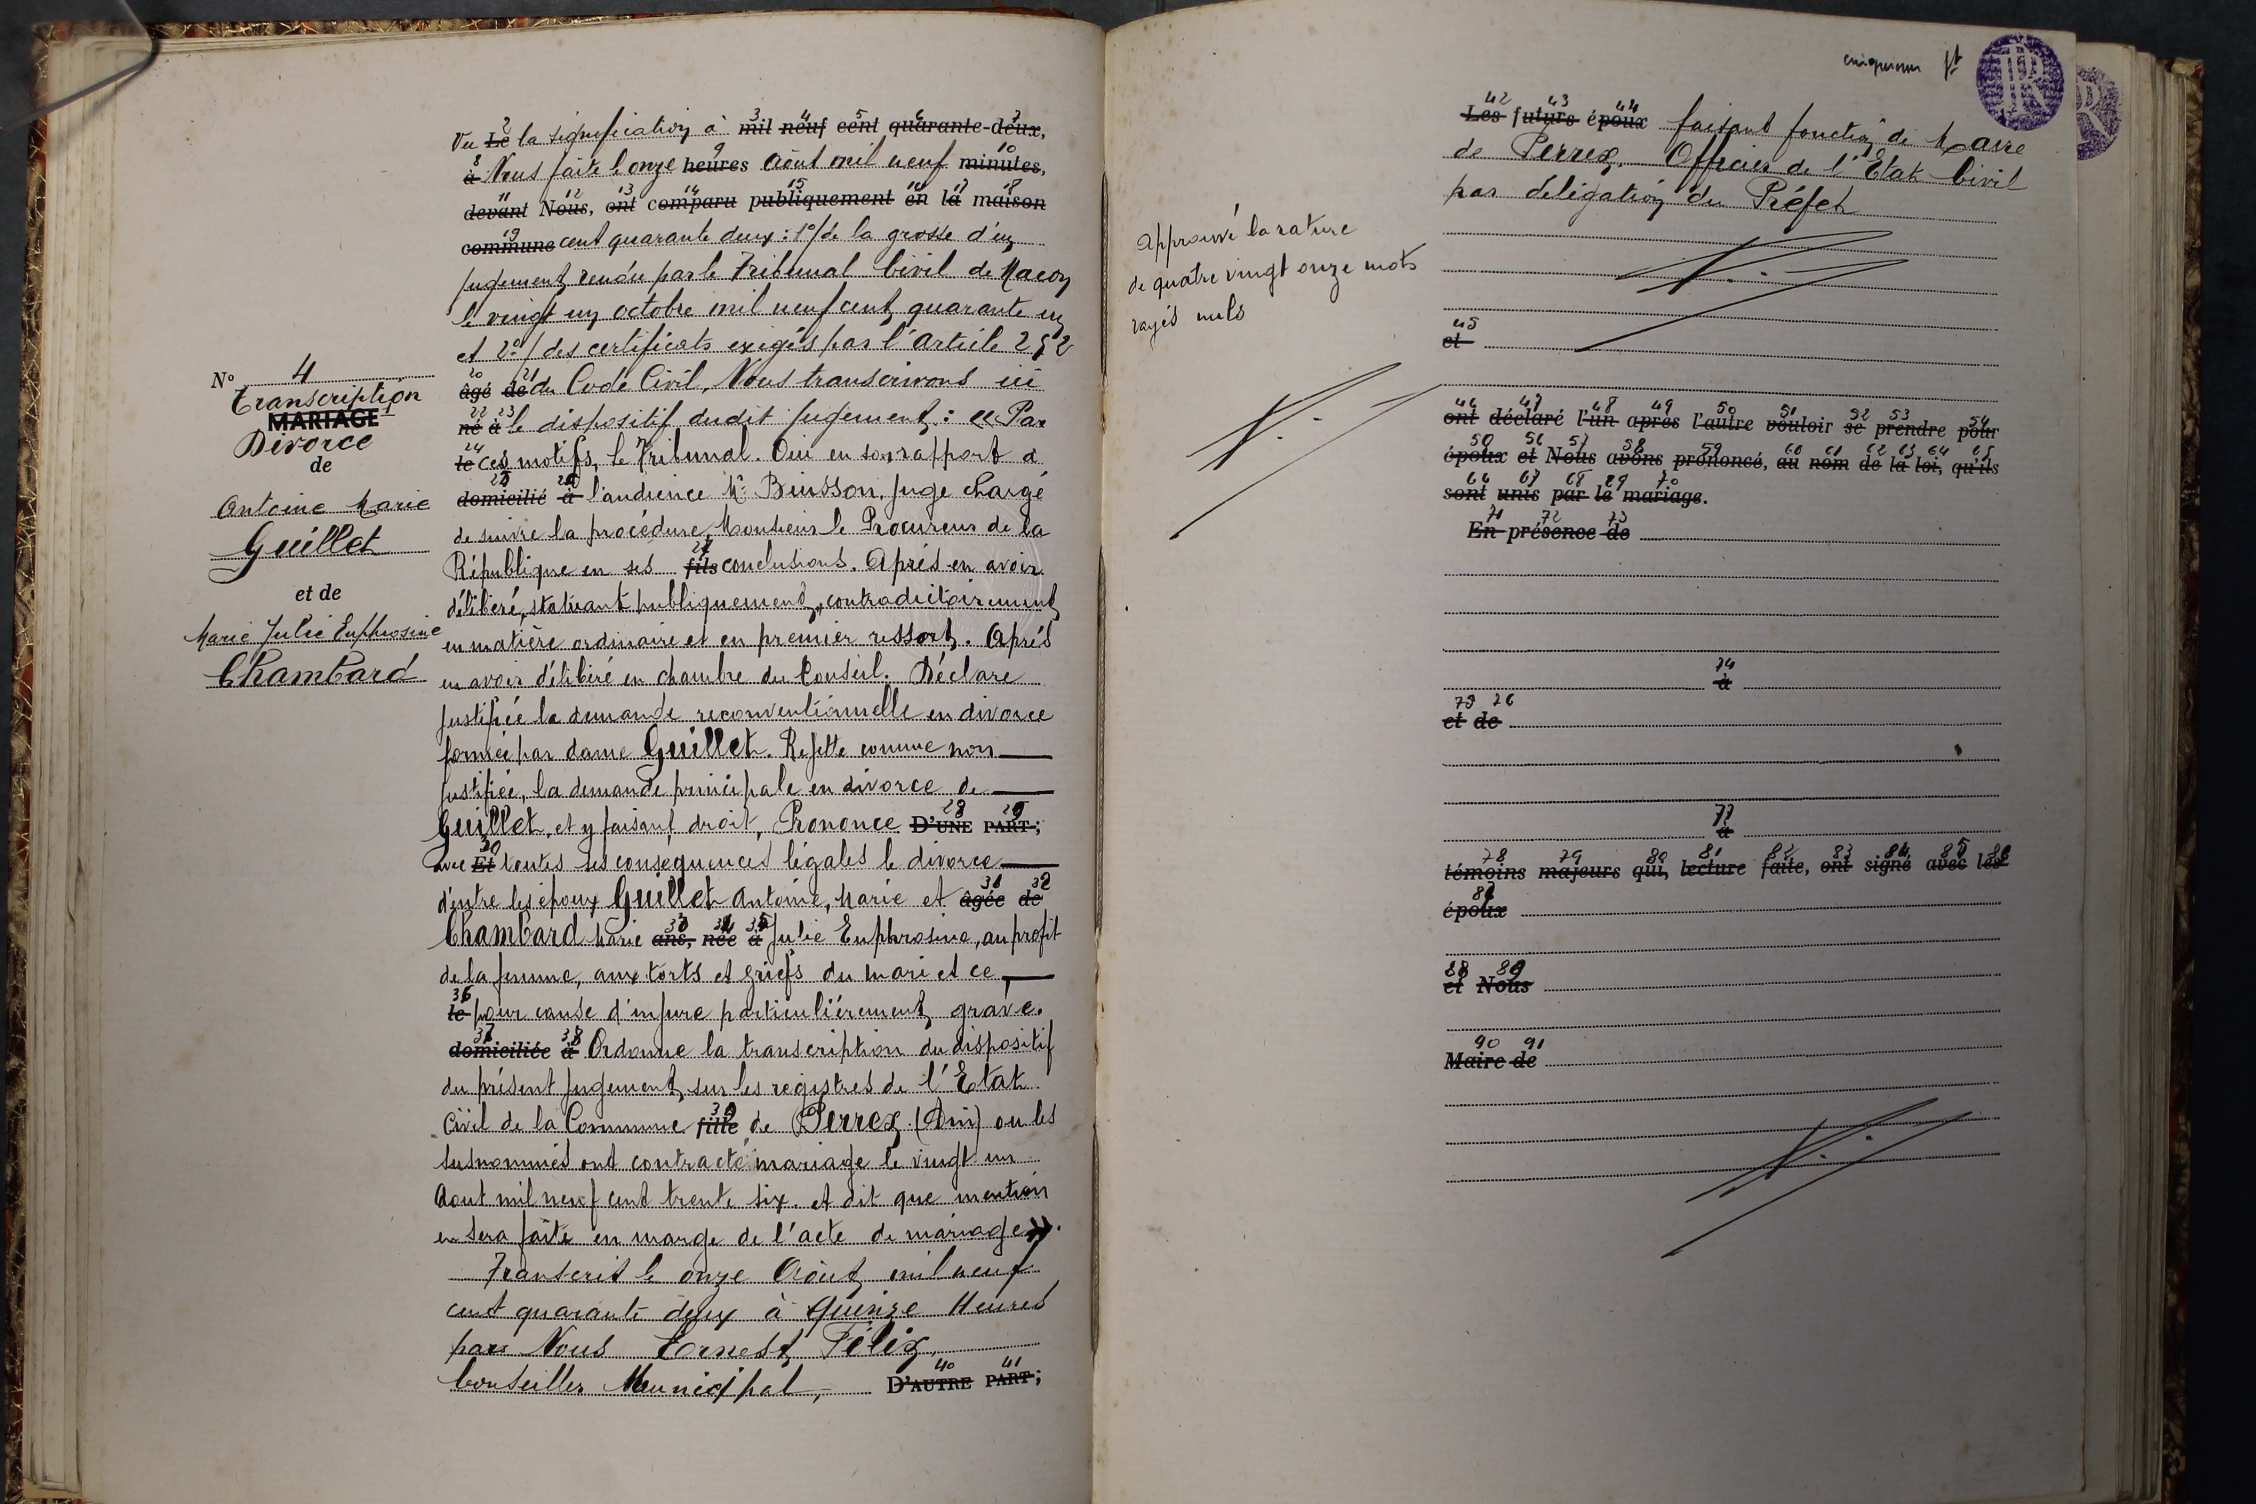 N° 4
Transcription
MARIAGE 1
Divorce
de
Antoine Marie
Guillet
et de
Marie Julie Euphrosine
Chambard
Vu Le 2 la signification à mil 3 neuf 4 cent 5 quarante 6-deux 7,
à 8 Nous faite le onze heures 9 Août mil neuf minutes 10,
devant 11 Nous 12, ont 13 comparu 14 publiquement 15 en 16 la 17 maison 18
commune 19 cent quarante deux : 1°/ de la grosse d'un
jugement rendu par le Tribunal Civil de Macon
le vingt un octobre mil neuf cent quarante un
et 2°/ des certificats exigés par l'article 252
âgé 20 de 21 du Code Civil, Nous transcrivons ici
né 22 à 23 le dispositif dudit jugement : « Par
le 24 ces motifs, le Tribunal. Oui en son rapport à
domicilié 25 à 26 l'audience Mr Buisson, Juge chargé
de suivre la procédure, Monsieur le Procureur de la
République en ses fils 27 conclusions. Après en avoir
délibéré, statuant publiquement, contradictoirement
en matière ordinaire et en premier ressort. Après
en avoir délibéré en chambre du Conseil. Déclare
justifiée la demande reconventionnelle en divorce
formée par dame Guillet. Rejette comme non
justifiée, la demande principale en divorce de
Guillet, et y faisant droit, Prononce D'UNE 28 PART 29;
avec Et 30 toutes ses conséquences légales le divorce
d'entre les époux Guillet Antoine, Marie et âgée 31 de 32
Chambard Marie ans 33, née 34 à 35 Julie Euphrosine, au profit
de la femme, aux torts et griefs du mari et ce,
le 36 pour cause d'injure particulièrement grave.
domiciliée 37 à 38 Ordonne la transcription du dispositif
du présent jugement sur les registres de l'Etat
Civil de la Commune fille 39 de Perrex (Ain) ou les
susnommés ont contracté mariage le vingt un
Aout mil neuf cent trente six. et dit que mention
en sera faite en marge de l'acte de mariage ».
Transcrit le onze Août mil neuf
cent quarante deux à Quinze Heures
par Nous Ernest Félix,
Conseiller Municipal, D'AUTRE 40 PART 41;
Approuvé la rature
de quatre vingt onze mots
rayés nuls
Les 42 futurs 43 époux 44 faisant fonction de Maire
de Perrex. Officier de l'Etat Civil
par délégation du Préfet
et 45
ont 46 déclaré 47 l'un 48 après 49 l'autre 50 vouloir 51 se 52 prendre 53 pour 54
époux 55 et 56 Nous 57 avons 58 prononcé 59, au 60 nom 61 de 62 la 63 loi 64, qu'ils 65
sont 66 unis 67 par 68 le 69 mariage 70.
En 71 présence 72 de 73
à 74
et 75 de 76
à 77
témoins 78 majeurs 79 qui 80, lecture 81 faite 82, ont 83 signé 84 avec 85 les 86
époux 87
et 88 Nous 89
Maire 90 de 91